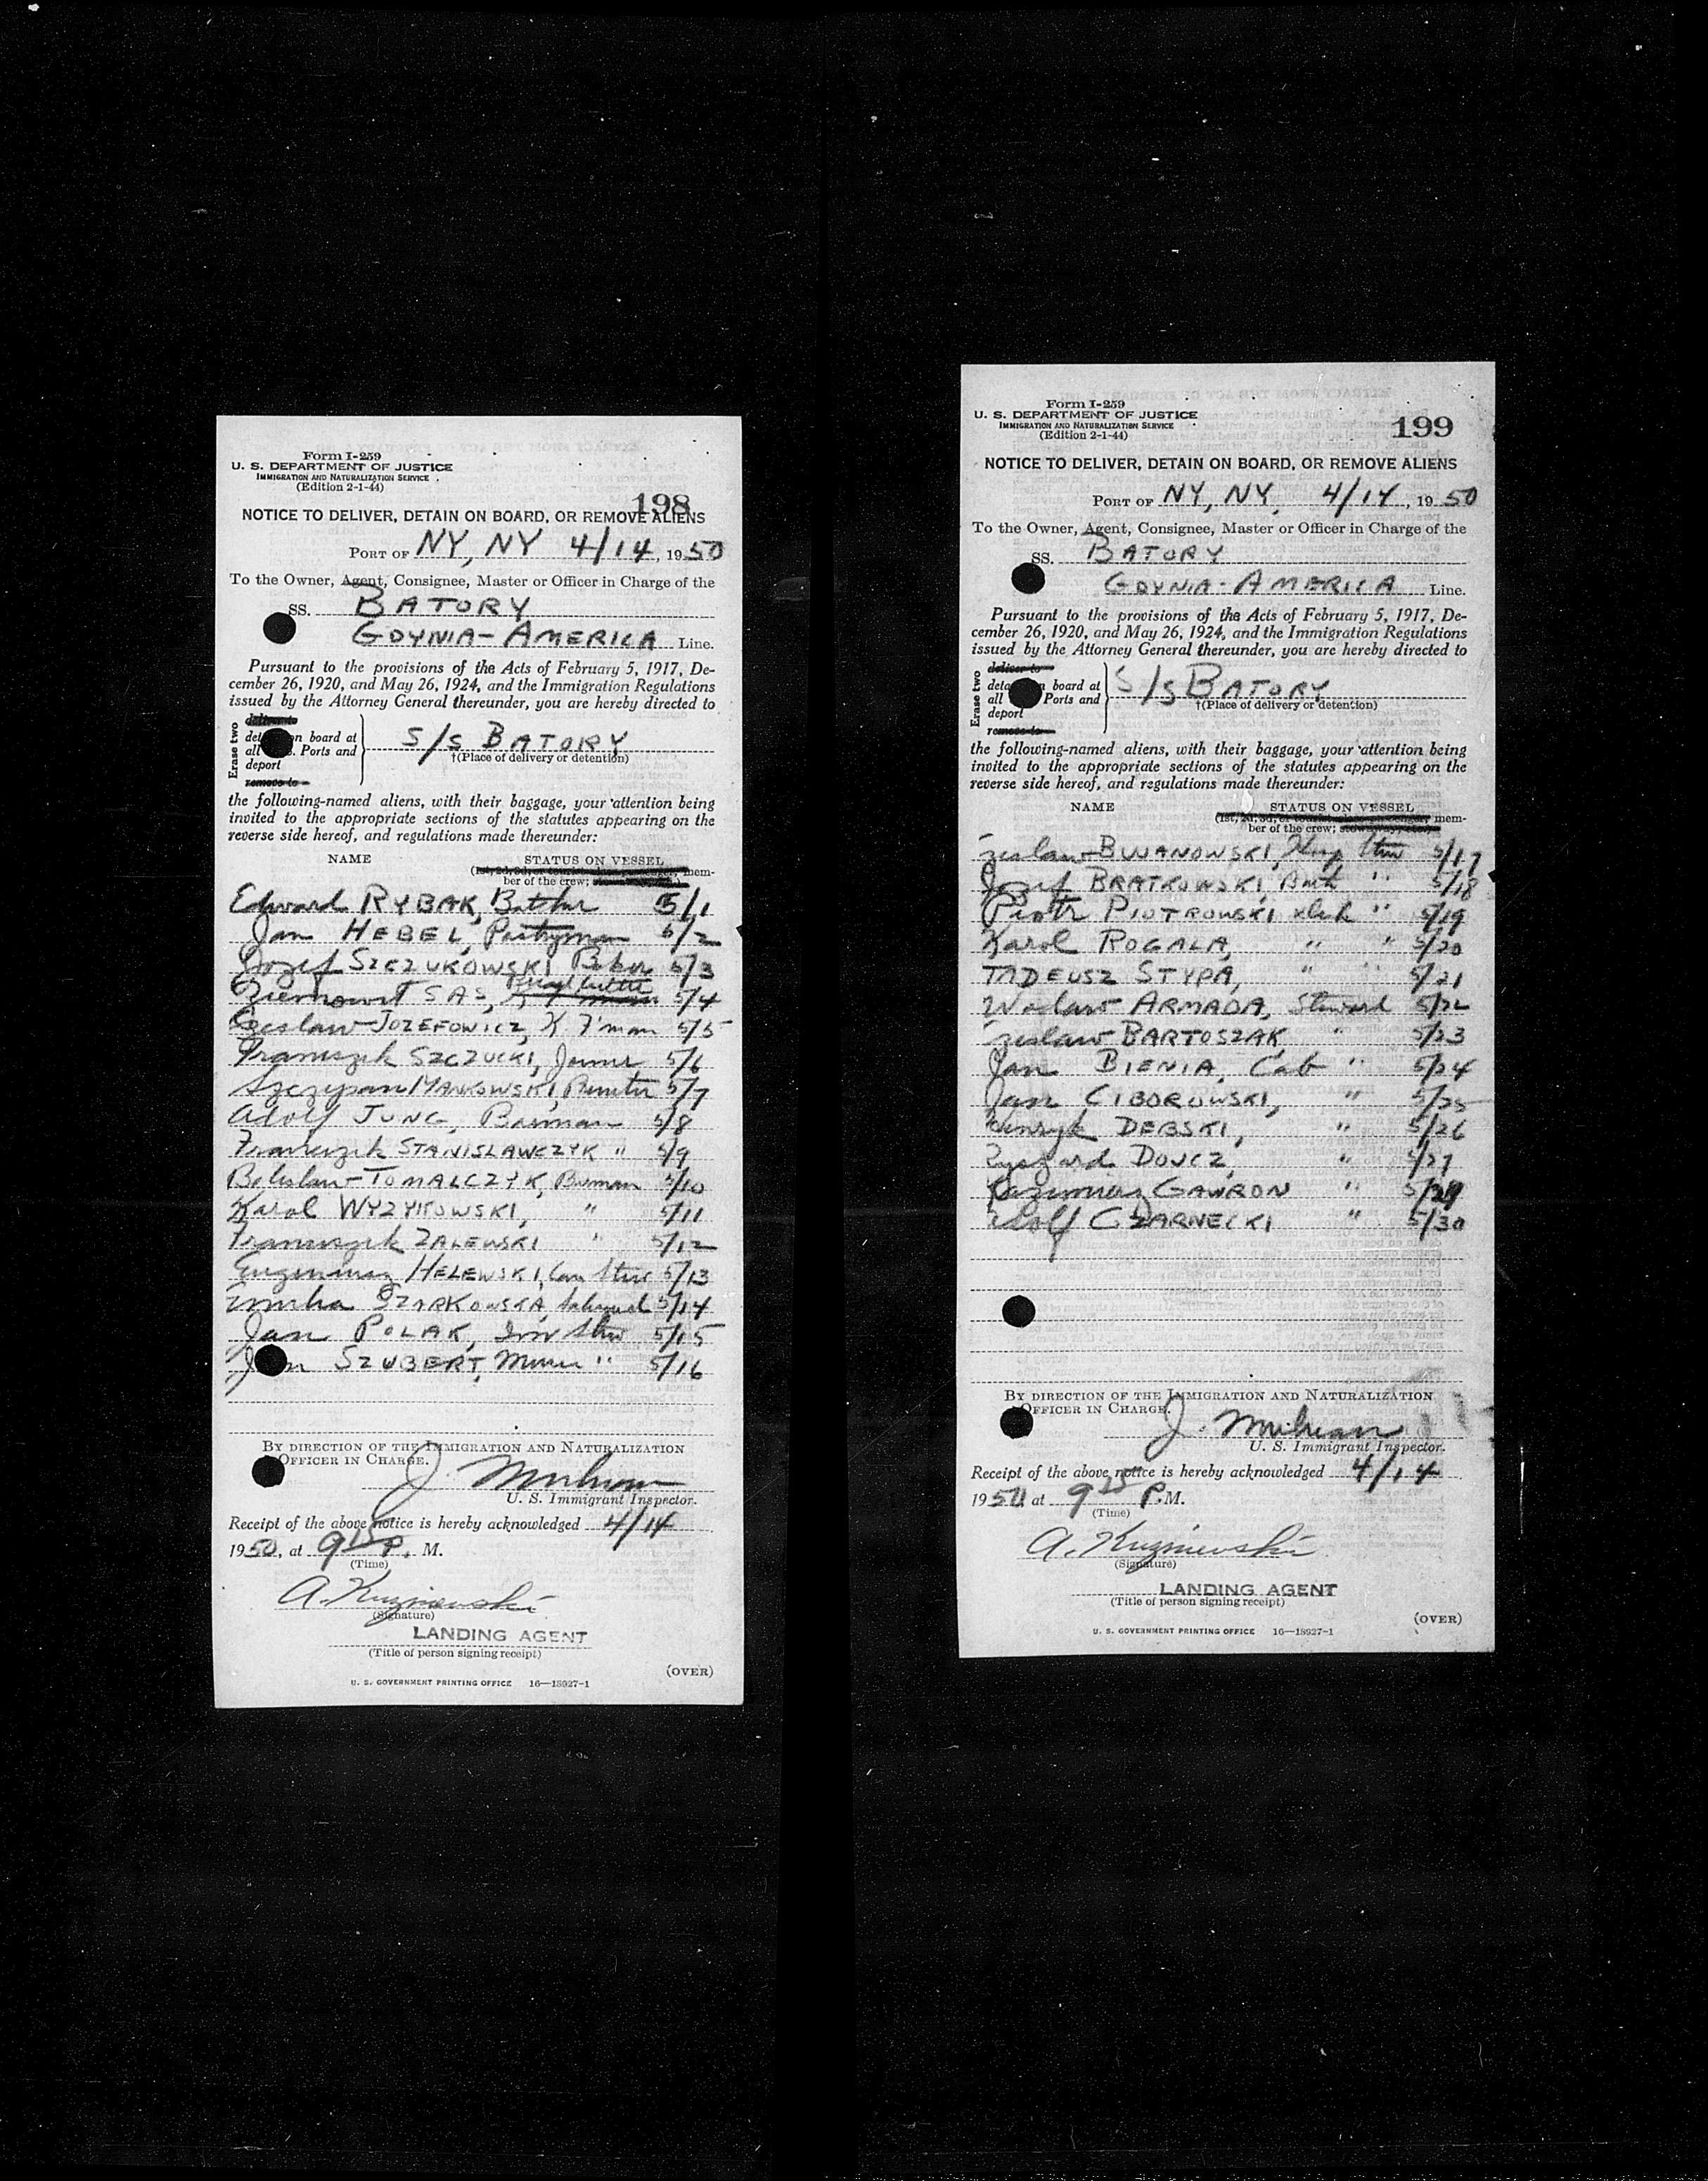 Form I-259
U. S. DEPARTMENT OF JUSTICE
IMMIGRATION AND NATURALIZATION SERVICE
(Edition 2-1-44)
198
NOTICE TO DELIVER, DETAIN ON BOARD, OR REMOVE ALIENS
PORT OF NY, NY 4/14, 1950
To the Owner, Agent, Consignee, Master or Officer in Charge of the
SS. BATORY
GDYNIA-AMERICA Line.
Pursuant to the provisions of the Acts of February 5, 1917, De-
cember 26, 1920, and May 26, 1924, and the Immigration Regulations
issued by the Attorney General thereunder, you are hereby directed to
Erase two
deliver to
on board at
all Ports and
deport
remove to
S/S BATORY
†(Place of delivery or detention)
the following-named aliens, with their baggage, your attention being
invited to the appropriate sections of the statutes appearing on the
reverse side hereof, and regulations made thereunder:
NAME STATUS ON VESSEL
mem-
ber of the crew;
Edward RYBAK, Butcher 5/1
Jan HEBEL, Pastryman 5/2
Jozef SZCZUKOWSKI Baker 5/3
Ziemowit SAS, 5/4
Czeslaw JOZEFOWICZ, K. F'man 5/5
Franciszek SZCZUCKI, Joiner 5/6
Szczepan MANKOWSKI, 5/7
Adolf JUNG, Barman 5/8
Franciszek STANISLAWCZYK " 5/9
Boleslaw TOMALCZYK, Barman 5/10
Karol WYZYKOWSKI, " 5/11
Franciszek ZALEWSKI " 5/12
Eugeniusz HELEWSKI, Stew 5/13
SZARKOWSKA, 5/14
Jan POLAK, Stew 5/15
Jan SZUBERT, " 5/16
BY DIRECTION OF THE IMMIGRATION AND NATURALIZATION
OFFICER IN CHARGE.
J.
U. S. Immigrant Inspector.
Receipt of the above notice is hereby acknowledged 4/14
1950, at 9 15 P. M.
(Time)
A. Kuzniewski
(Signature)
LANDING AGENT
(Title of person signing receipt)
(OVER)
U. S. GOVERNMENT PRINTING OFFICE 16—18927-1
Form I-259
U. S. DEPARTMENT OF JUSTICE
IMMIGRATION AND NATURALIZATION SERVICE
(Edition 2-1-44)
199
NOTICE TO DELIVER, DETAIN ON BOARD, OR REMOVE ALIENS
PORT OF NY, NY, 4/14, 1950
To the Owner, Agent, Consignee, Master or Officer in Charge of the
SS. BATORY
GDYNIA-AMERICA Line.
Pursuant to the provisions of the Acts of February 5, 1917, De-
cember 26, 1920, and May 26, 1924, and the Immigration Regulations
issued by the Attorney General thereunder, you are hereby directed to
Erase two
deliver to
board at
all Ports and
deport
remove to
S/S BATORY
†(Place of delivery or detention)
the following-named aliens, with their baggage, your attention being
invited to the appropriate sections of the statutes appearing on the
reverse side hereof, and regulations made thereunder:
NAME STATUS ON VESSEL
mem-
ber of the crew;
Czeslaw BUJANOWSKI, Stew 5/17
Jozef BRATKOWSKI, " 5/18
Piotr PIOTROWSKI " 5/19
Karol ROGALA, " " 5/20
TADEUSZ STYPA, " " 5/21
Waclaw ARMADA, Steward 5/22
Czeslaw BARTOSZAK " 5/23
Jan BIENIA, Cab " 5/24
Jan CIBOROWSKI, " 5/25
Henryk DEBSKI, " 5/26
Ryszard DOUCZ, " 5/27
Kazimierz GAWRON " 5/29
Adolf CZARNECKI " 5/30
BY DIRECTION OF THE IMMIGRATION AND NATURALIZATION
OFFICER IN CHARGE.
J.
U. S. Immigrant Inspector.
Receipt of the above notice is hereby acknowledged 4/14
1950, at 9 15 P. M.
(Time)
A. Kuzniewski
(Signature)
LANDING AGENT
(Title of person signing receipt)
(OVER)
U. S. GOVERNMENT PRINTING OFFICE 16—18927-1